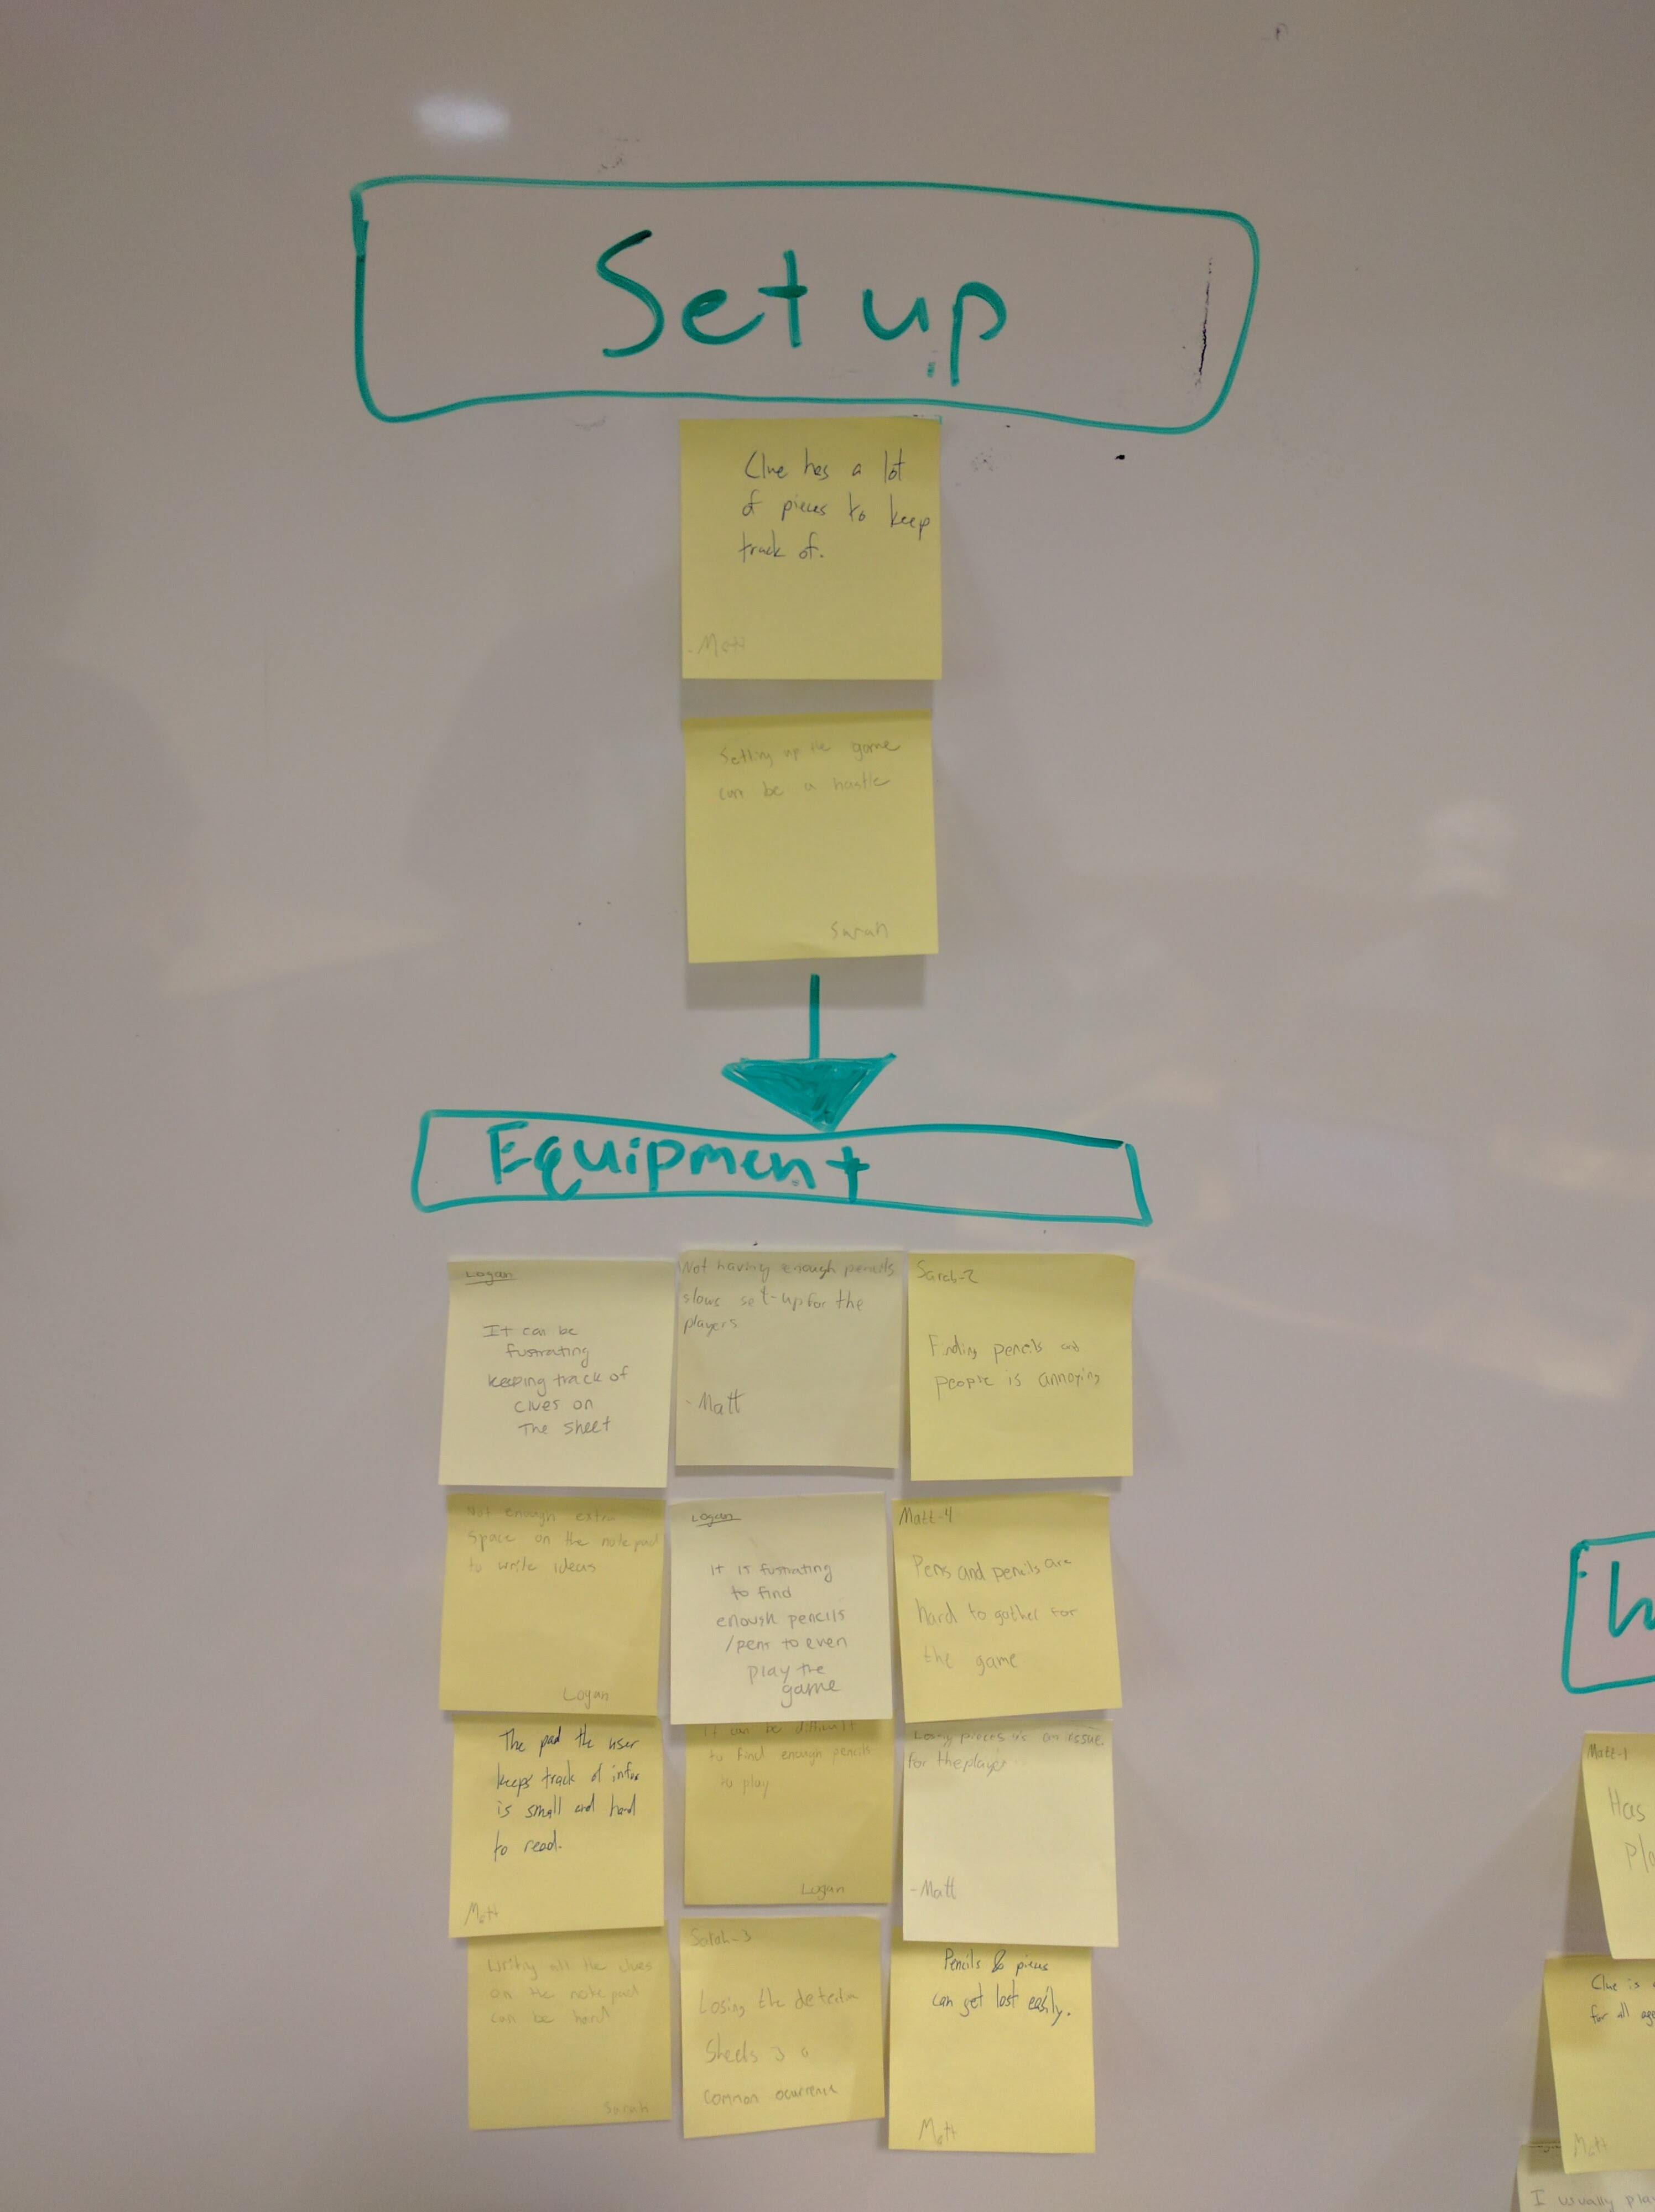 Set up
Clue has a lot
of pieces to keep
track of.
-Matt
Setting up the game
can be a hastle
Sarah
Equipment
Logan
It can be
fustrating
keeping track of
clues on
The sheet
Not having enough pencils
slows set-up for the
players
- Matt
Sarah-2
Finding pencils and
people is annoying
Not enough extra
space on the notepad
to write ideas
Logan
Logan
it is fustrating
to find
enough pencils
/pens to even
play the
game
Matt-4
Pens and pencils are
hard to gather for
the game
The pad the user
keeps track of infor
is small and hard
to read.
Matt
It can be difficult
to find enough pencils
to play
Logan
Losing pieces is an issue
for the player
-Matt
Writing all the clues
on the notepad
can be hard
Sarah
Sarah-3
Losing the detective
sheets is a
common ocurrence
Pencils & pieces
can get lost easily.
Matt
Matt-1
Has
Clue is
for all
Matt
I usually